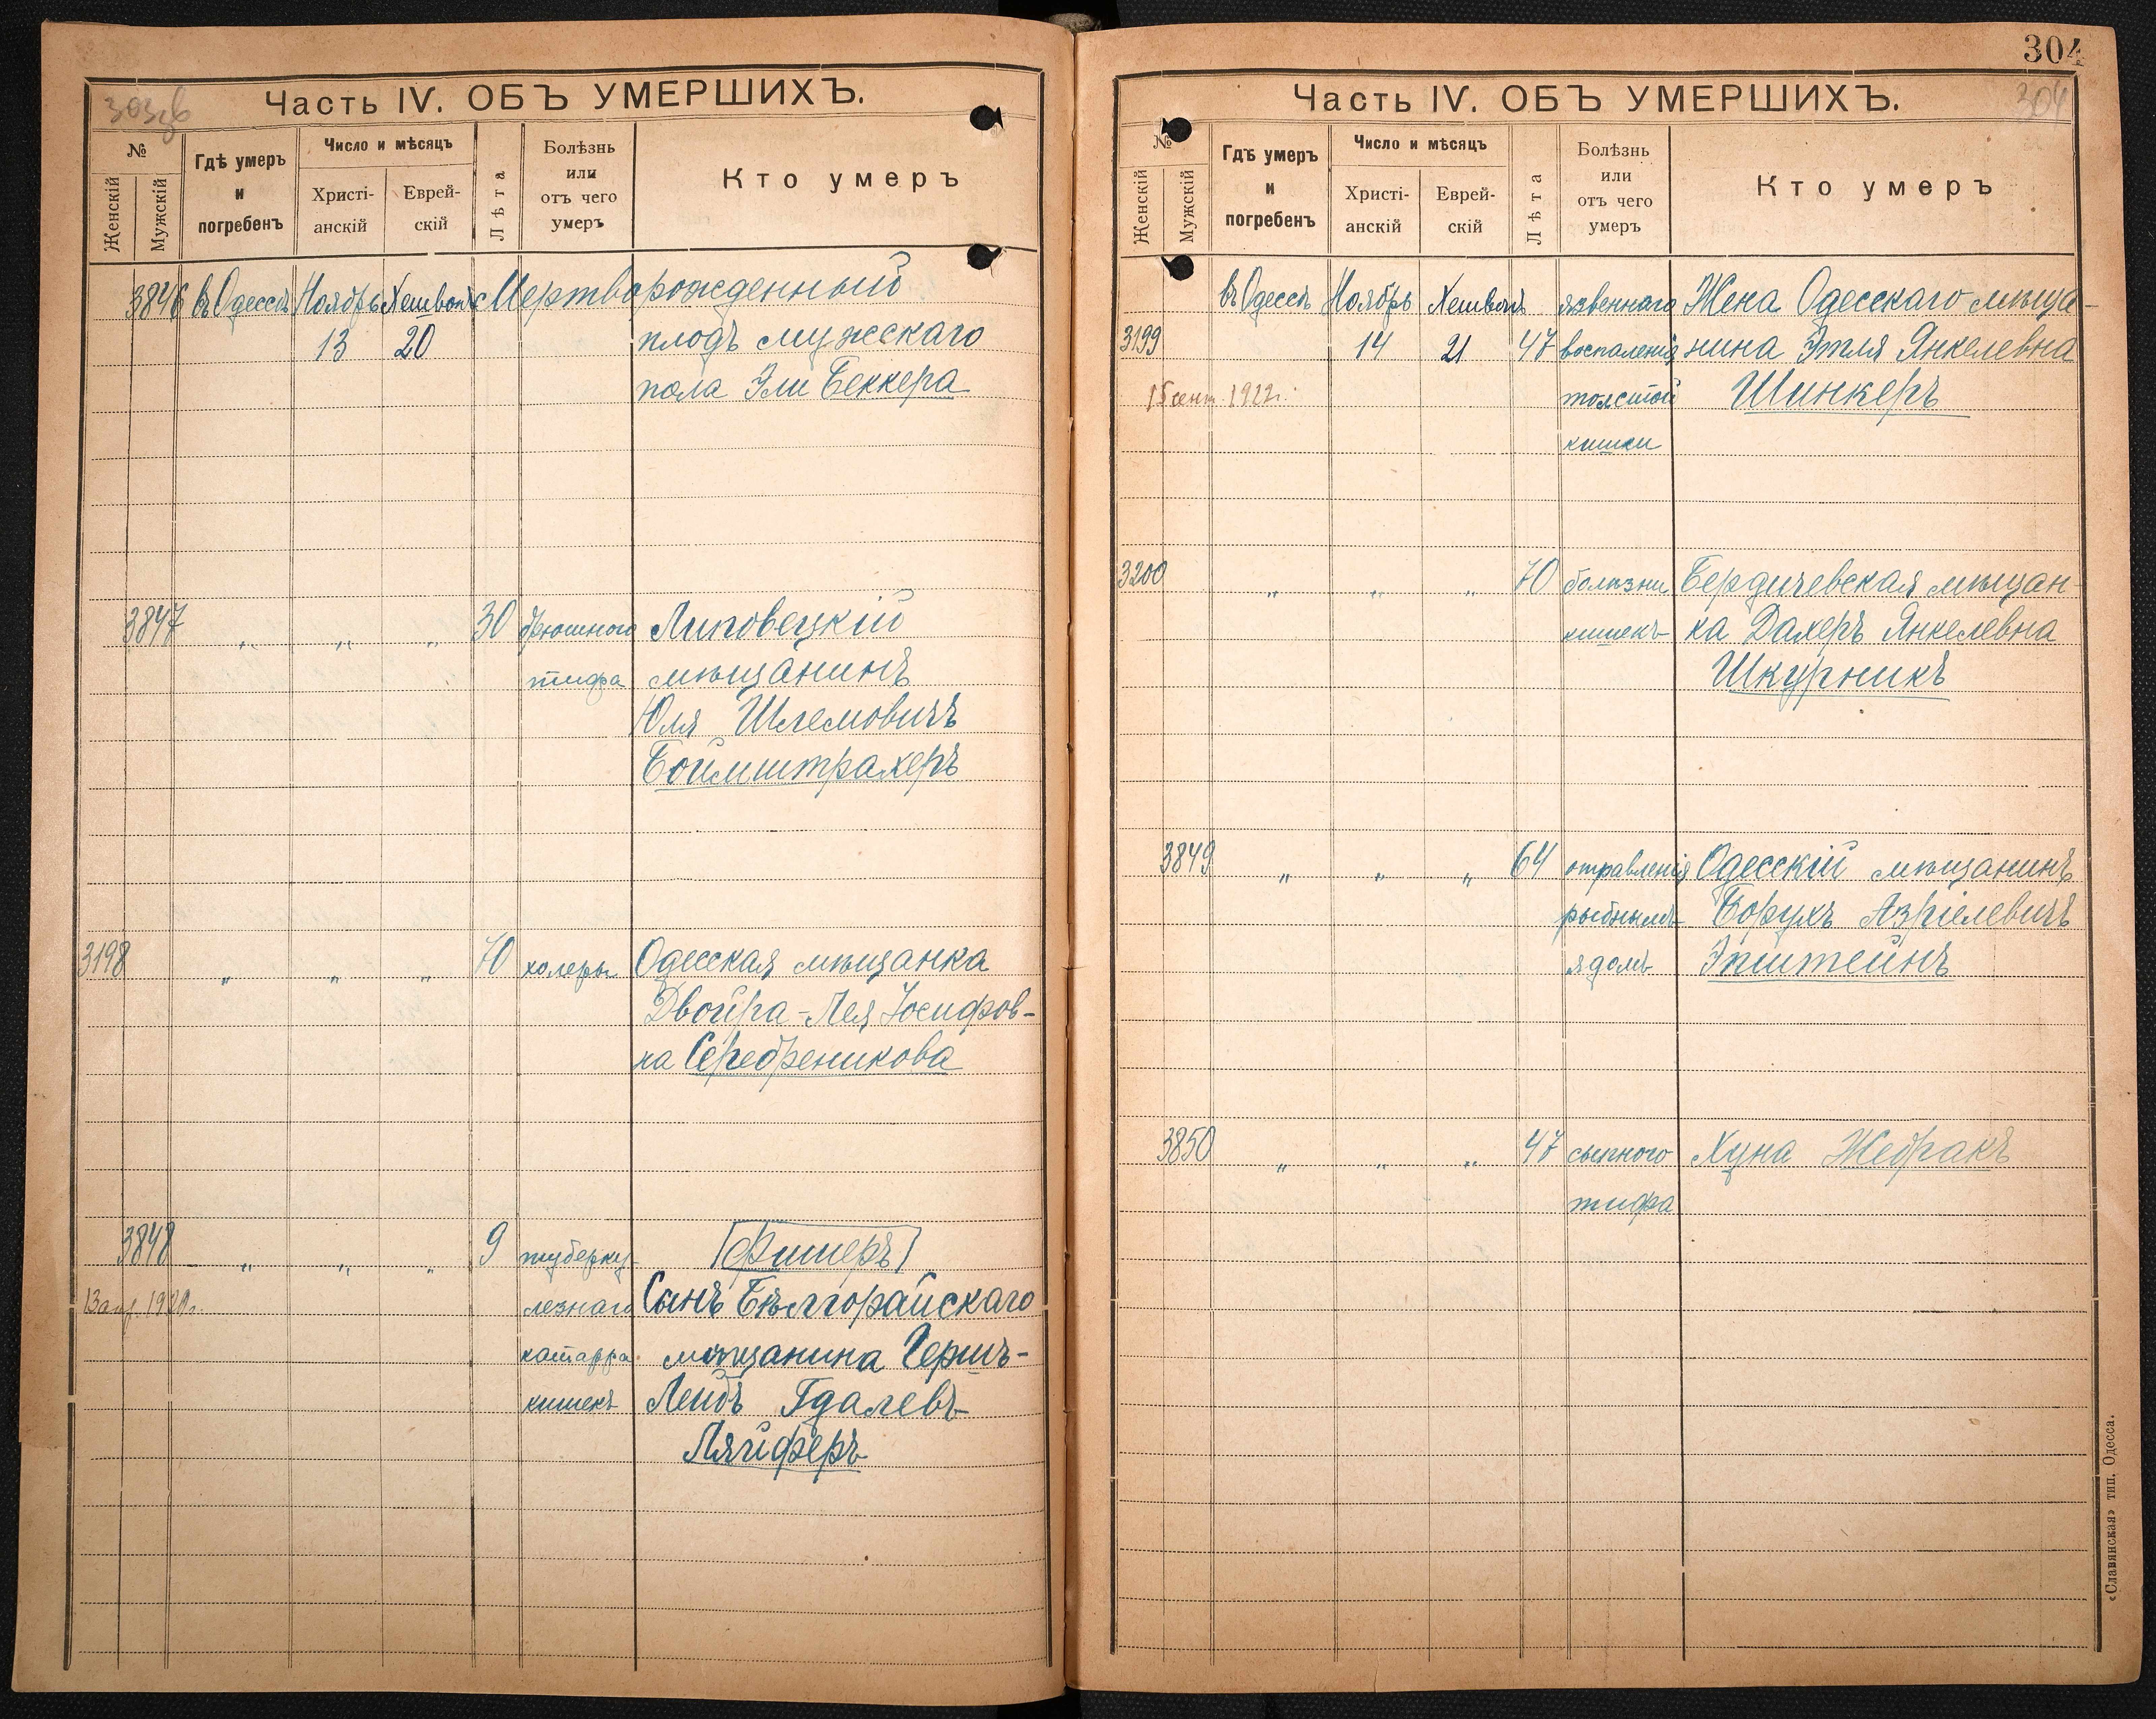 303зв
Часть IV. ОБЪ УМЕРШИХЪ.
№
Женскій
Мужскій
Гдѣ умеръ и погребенъ
Число и мѣсяцъ
Христіанскій
Еврейскій
Лѣта
Болѣзнь или отъ чего умеръ
Кто умеръ
3846 въ Одессѣ Ноябрь Хешвонъ Мертворожденный
13 20 плодъ мужскаго
пола Эли Беккера
3847 „ „ „ 30 брюшного Липовецкій
тифа мѣщанинъ
Юля Шлемовичъ
Боймштрахеръ
3198 „ „ „ 70 холеры Одесская мѣщанка
Двойра-Лея Іосифов-
на Серебреникова
3848 „ „ „ 9 туберку- Фишеръ
лезнаго Сынъ Бѣлгорайскаго
катарра мѣщанина Гершъ-
кишекъ Лейбъ Гдалевъ
Ляйферъ
304
304
Часть IV. ОБЪ УМЕРШИХЪ.
№
Женскій
Мужскій
Гдѣ умеръ и погребенъ
Число и мѣсяцъ
Христіанскій
Еврейскій
Лѣта
Болѣзнь или отъ чего умеръ
Кто умеръ
въ Одессѣ Ноябрь Хешвонъ язвеннаго Жена Одесскаго мѣща-
3199 14 21 47 воспаленія нина Этля Янкелевна
15 сент. 1922г. толстой Шинкеръ
кишки
3200 „ „ „ 70 болѣзни Бердичевская мѣщан-
кишекъ ка Дахеръ Янкелевна
Шкурникъ
3849 „ „ „ 64 отравленія Одесскій мѣщанинъ
рыбнымъ Борухъ Азріелевичъ
ядомъ Эпштейнъ
3850 „ „ „ 47 сыпного Хуна Жебракъ
тифа
«Славянская» тип. Одесса.